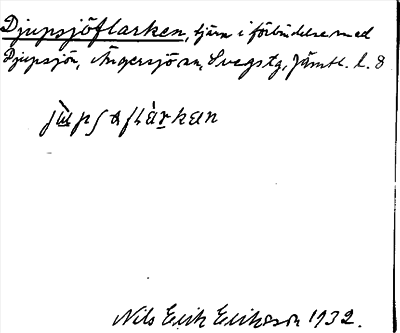 Djupsjöflarken, tjärn i förbindelse med
Djupsjön, Ängersjö sn, Svegs tg, Jämtl. l. 8
Nils Erik Eriksson 1932.